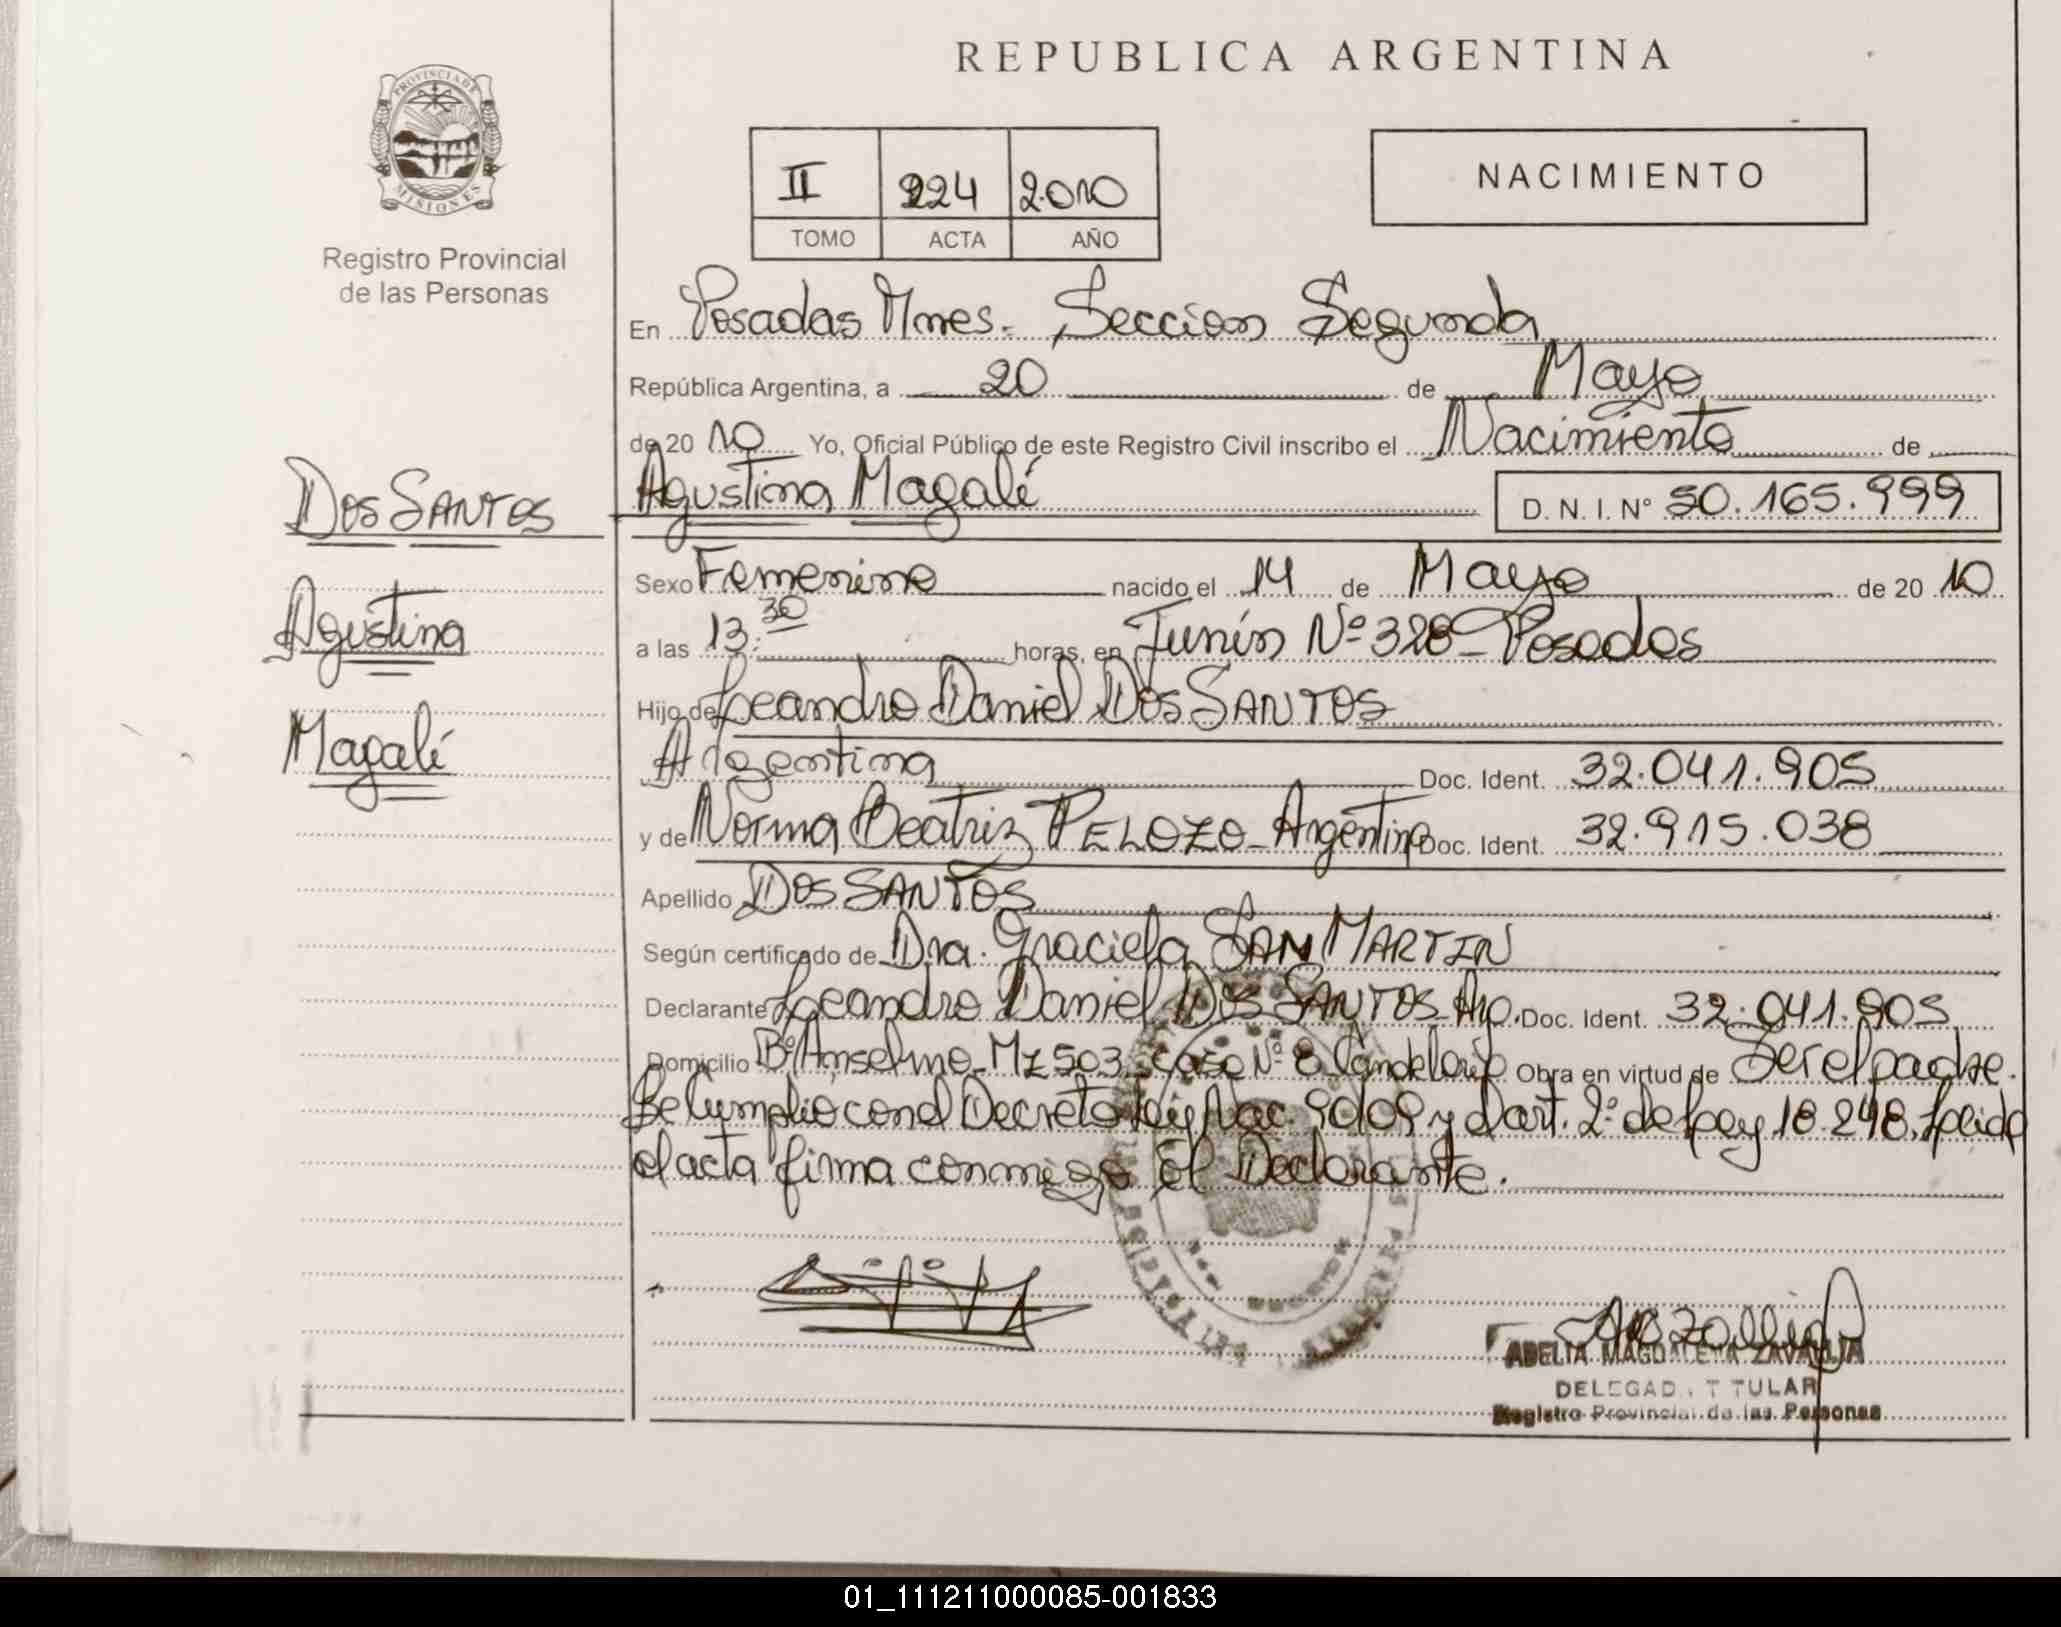 REPUBLICA ARGENTINA
PROVINCIA DE
MISIONES
Registro Provincial
de las Personas
II 224 2010
TOMO ACTA AÑO
NACIMIENTO
En Posadas Mnes. Seccion Segunda
República Argentina, a 20 de Mayo
de 2010 Yo, Oficial Público de este Registro Civil inscribo el Nacimiento de
DOS SANTOS
Agustina
Magalí
Agustina Magalí D. N. I. Nº 50.165.999
Sexo Femenino nacido el 14 de Mayo de 2010
a las 13:30 horas, en Junín Nº 328 - Posadas
Hijo de Leandro Daniel DOS SANTOS
Argentina Doc. Ident. 32.041.905
y de Norma Beatriz PELOZO - Argentina Doc. Ident. 32.915.038
Apellido DOS SANTOS
Según certificado de Dra. Graciela SAN MARTIN
Declarante Leandro Daniel DOS SANTOS Arg. Doc. Ident. 32.041.905
Domicilio Bº Anselmo - Mz 503 - casa Nº 8 Candelaria Obra en virtud de Ser el padre.
Se Cumplio con el Decreto Ley Nac. 9010 y el art. 2º de Ley 18.248. Leida
el acta firma conmigo el Declarante.
ADELIA MAGDALENA ZAVALLIA
DELEGADA TITULAR
Registro Provincial de las Personas
01_111211000085-001833